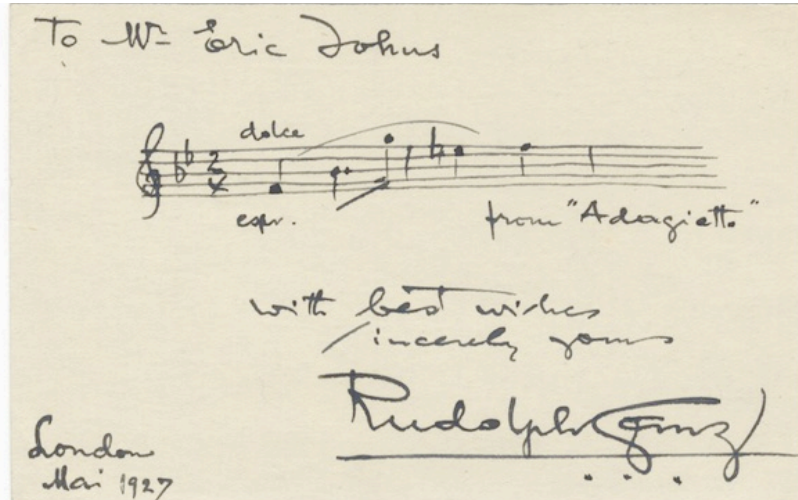 To Mr Eric Johns
dolce
2
4
espr.
from "Adagietto"
with best wishes
sincerely yours
Rudolph Ganz
London
Mai 1927